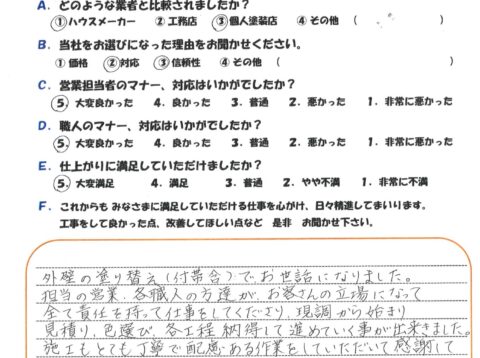 A. どのような業者と比較されましたか？
①ハウスメーカー ②工務店 ③個人塗装店 ④その他 （ ）
B. 当社をお選びになった理由をお聞かせください。
①価格 ②対応 ③信頼性 ④その他 （ ）
C. 営業担当者のマナー、対応はいかがでしたか？
5. 大変良かった 4. 良かった 3. 普通 2. 悪かった 1. 非常に悪かった
D. 職人のマナー、対応はいかがでしたか？
5. 大変良かった 4. 良かった 3. 普通 2. 悪かった 1. 非常に悪かった
E. 仕上がりに満足していただけましたか？
5. 大変満足 4. 満足 3. 普通 2. やや不満 1. 非常に不満
F. これからも みなさまに満足していただける仕事を心がけ、日々精進してまいります。
工事をして良かった点、改善してほしい点など 是非 お聞かせ下さい。
外壁の塗り替え(付帯含)で、お世話になりました。
担当の営業、各職人の方達が、お客さんの立場になって
全て責任を持って仕事をしてくださり、現調から始まり
見積り、色選び、各工程納得して進めていく事が出来きました。
施工もとても丁寧で配慮ある作業をしていただいて感謝して